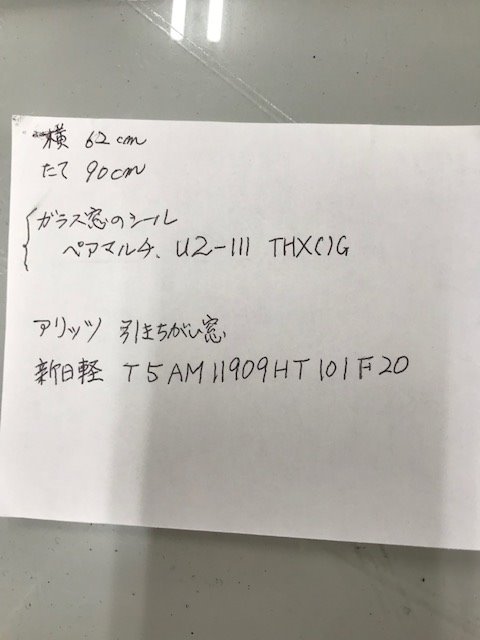 横 62cm
たて 90cm
ガラス窓のシール
ペアマルチ、U2-111 THX()G
アリッツ 引きちがい窓
新日軽 T5AM11909HT101F20